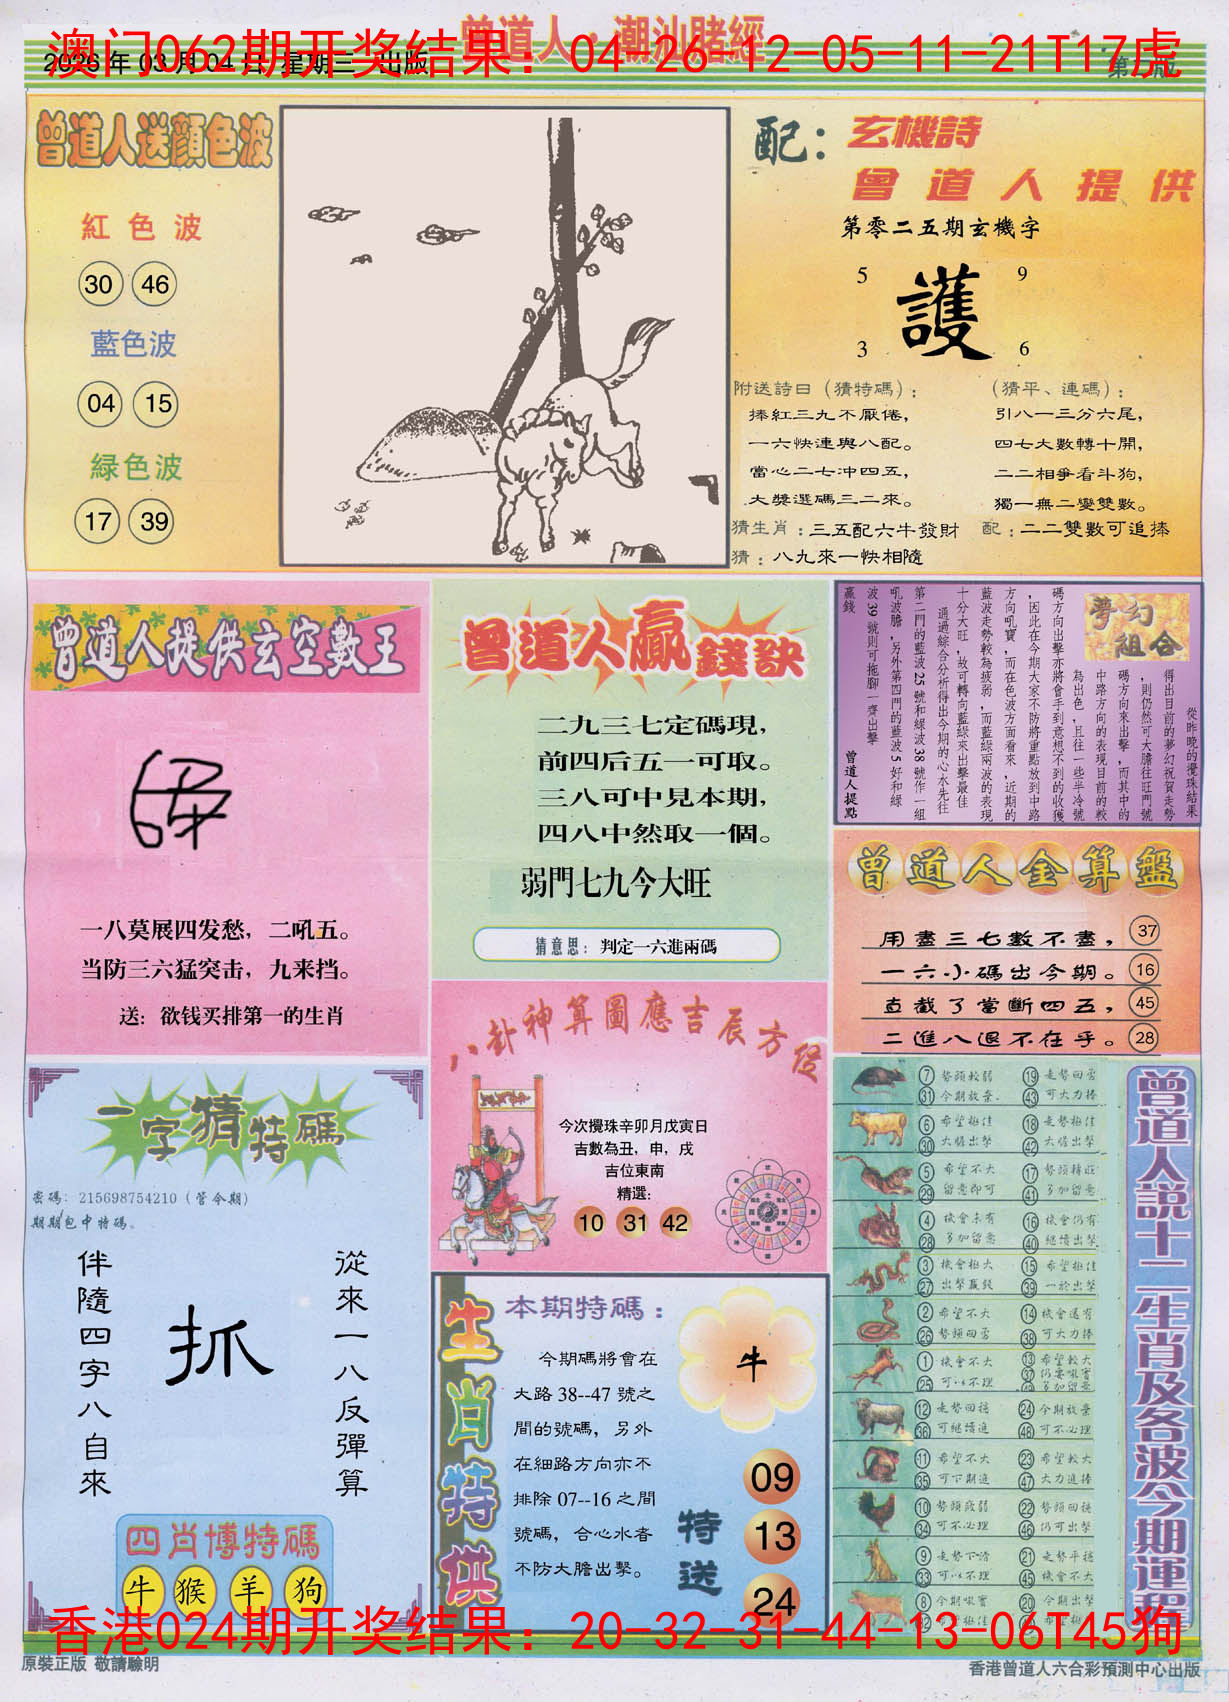 曾道人·潮汕賭經
澳门062期开奖结果：04-26-12-05-11-21T17虎
2026年03月04日 星期三 出版
曾道人送顏色波
紅色波
30 46
藍色波
04 15
緑色波
17 39
配：玄機詩
曾道人提供
第零二五期玄機字
5 9
護
3 6
附送詩日（猜特碼）：
捧紅三九不厭倦，
一六快連與八配。
當心二七冲四五，
大獎選碼三二來。
（猜平、連碼）：
引八一三分六尾，
四七大數轉十開，
二二相爭看斗狗，
獨一無二變雙數。
猜生肖：三五配六牛發財 配：二二雙數可追捧
猜：八九來一快相隨
曾道人提供玄空數王
一八莫展四发愁，二吼五。
当防三六猛突击，九来挡。
送：欲钱买排第一的生肖
曾道人贏錢訣
二九三七定碼現，
前四后五一可取。
三八可中見本期，
四八中然取一個。
弱門七九今大旺
猜意思：判定一六進兩碼
夢幻組合
從昨晚的攪珠結果
得出目前的夢幻祝賀走勢
，則仍然可大膽往旺門號
碼方向來出擊，而其中的
中路方向的表現目前的較
為出色，且往一些半冷號
碼方向出擊亦將會手到意想不到的收獲
，因此在今期大家不防將重點放到中路
方向吼寶，而在色波方面看來，近期的
藍波走勢較為疲弱，而藍綠兩波的表現
十分大旺，故可轉向藍綠來出擊最佳
通過綜合分析得出今期的心水先往
第二門的藍波25號和綠波38號作一組
吼波膽，另外第四門的藍波5好和綠
波39號則可拖腳一齊出擊
贏錢
曾道人提點
曾道人金算盤
用盡三七數不盡， 37
一六小碼出今期。 16
直截了當斷四五， 45
二進八退不在乎。 28
八卦神算圖應吉辰方位
今次攪珠辛卯月戊寅日
吉數為丑，申，戌
吉位東南
精選:
10 31 42
一字猜特碼
密碼：215698754210（管今期）
期期包中特碼。
從來一八反彈算
抓
伴隨四字八自來
四肖博特碼
牛 猴 羊 狗
生肖特供
本期特碼：
今期碼將會在
大路38--47號之
間的號碼，另外
在細路方向亦不
排除07--16之間
號碼，合心水者
不防大膽出擊。
牛
特送
09
13
24
曾道人説十二生肖及各波今期運程
7 勢頭較弱 19 走勢回勇
31 今期放棄 43 可大力捧
6 希望極佳 18 走勢極佳
30 大膽出擊 42 大膽出擊
5 希望不大 17 勢頭轉旺
29 留意即可 41 多加留意
4 機會未有 16 機會仍有
28 多加留意 40 繼續出擊
3 機會極大 15 希望極佳
27 出擊贏錢 39 一於出擊
2 希望不大 14 機會還有
26 勢頭回勇 38 可大力捧
1 機會不大 13 希望較大
25 可以不理 37 仍要吸實
12 走勢回穩 24 今期放棄
36 可繼續追 48 可不必理
11 希望不大 23 希望較大
35 可下期追 47 大力追捧
10 勢頭疲弱 22 勢頭回穩
34 可不必理 46 仍可出擊
9 走勢下滑 21 走勢平穩
33 可以不理 45 機會不大
8 今期吸實 20 今期出擊
香港024期开奖结果：20-32-31-44-13-06T45狗
原裝正版 敬請驗明
香港曾道人六合彩預測中心出版